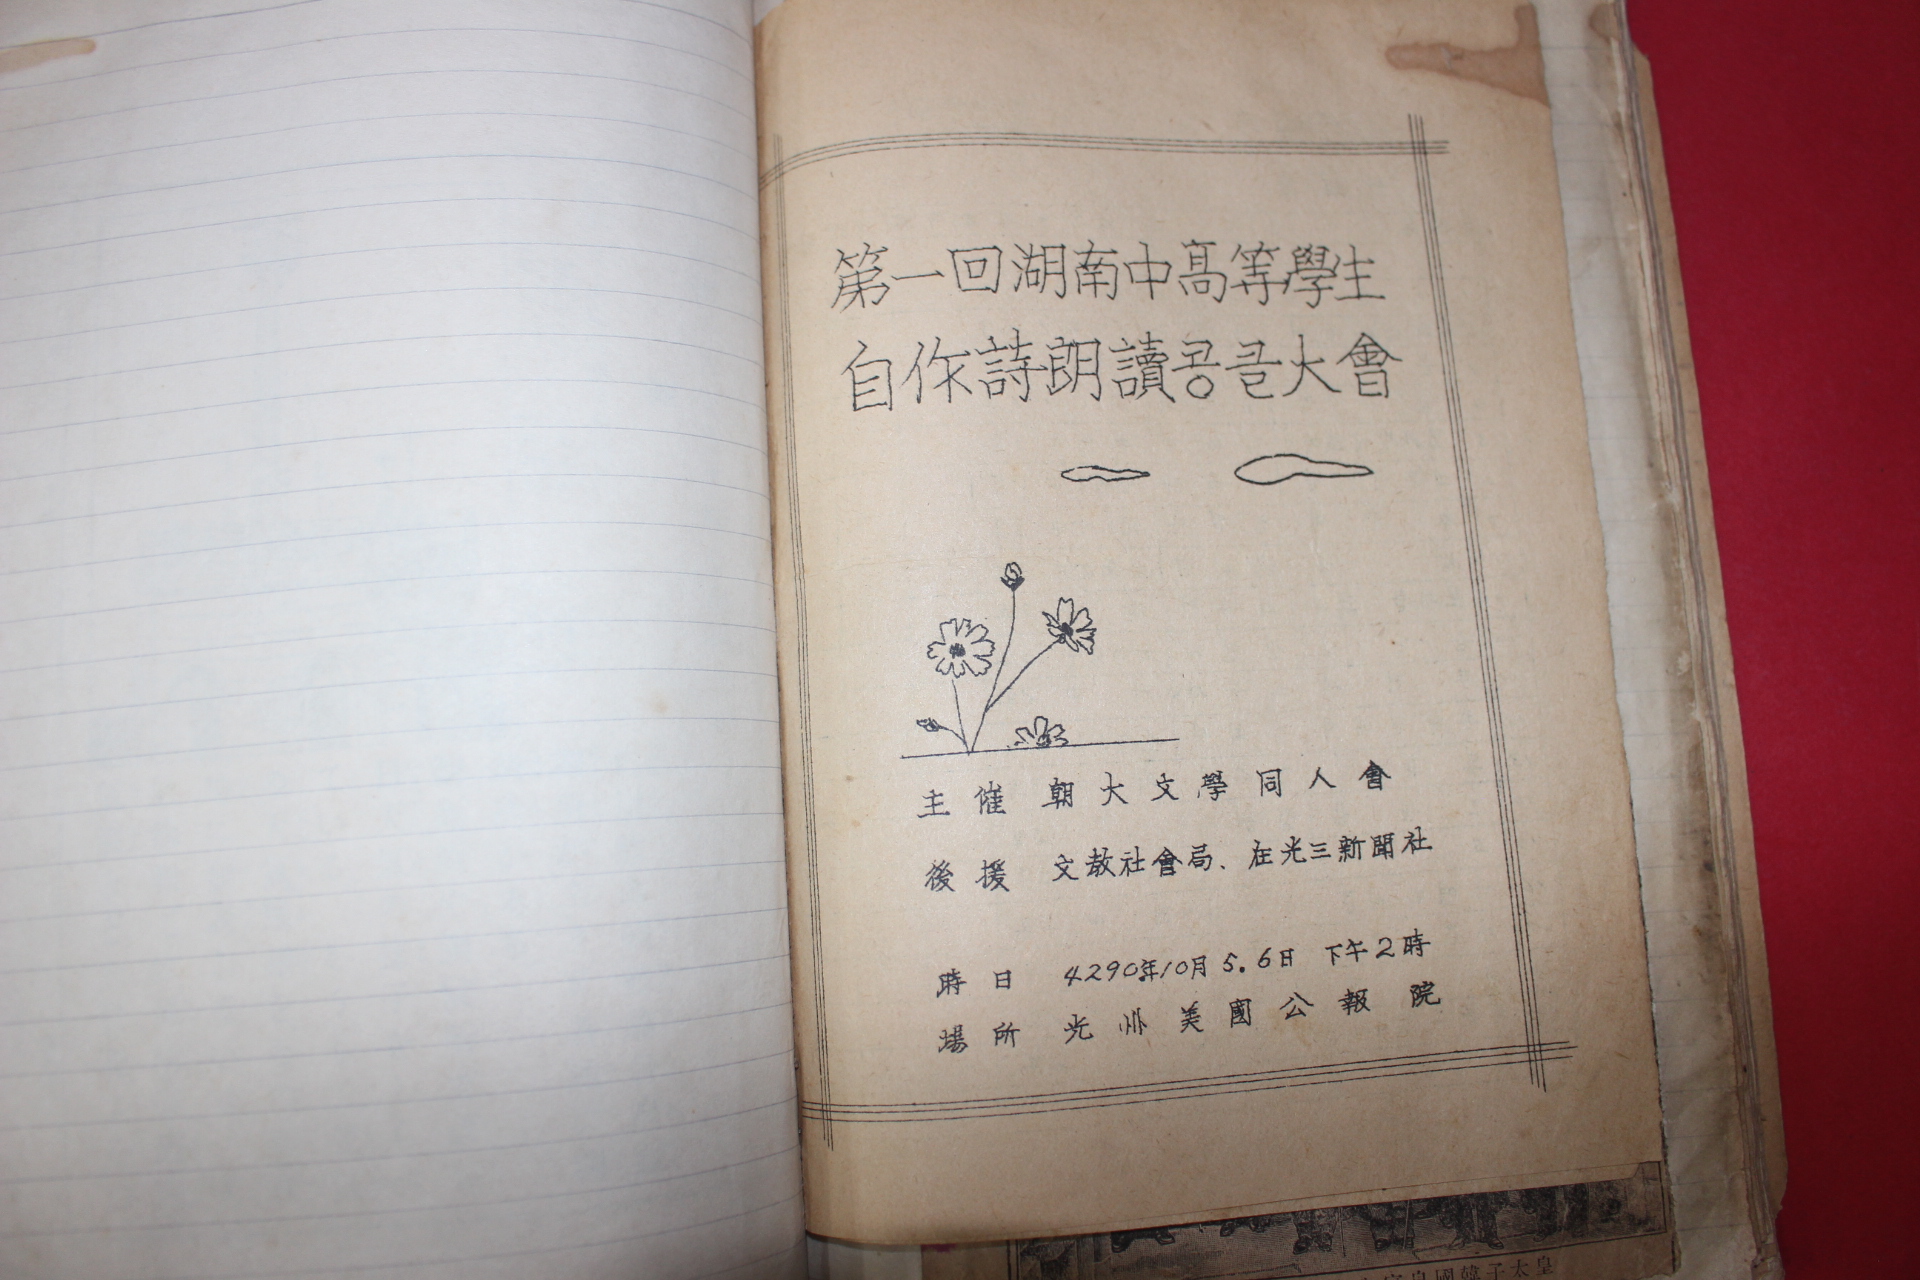 第一回湖南中高等學生
自作詩朗讀콩클大會
主催 朝大文學同人會
後援 文敎社會局、在光三新聞社
時日 4290年10月5.6日 下午2時
場所 光州美國公報院
皇太子韓國皇